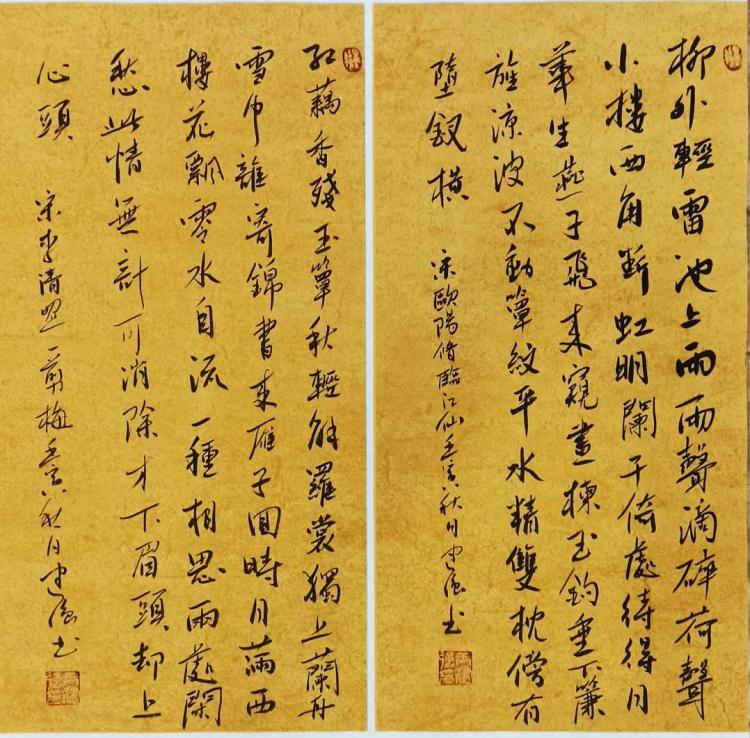 柳外輕雷池上雨雨聲滴碎荷聲
小樓西角斷虹明闌干倚處待得月
華生燕子飛來窺畫棟玉鈎垂下簾
旌涼波不動簟紋平水精雙枕傍有
墮釵橫
宋歐陽修臨江仙壬寅秋月书
红藕香殘玉簟秋輕解羅裳獨上蘭舟
雪中誰寄錦書來雁子回時月滿西
樓花飄零水自流一種相思兩處閑
愁此情無計可消除才下眉頭却上
心頭
宋李清照一剪梅壬寅秋月书